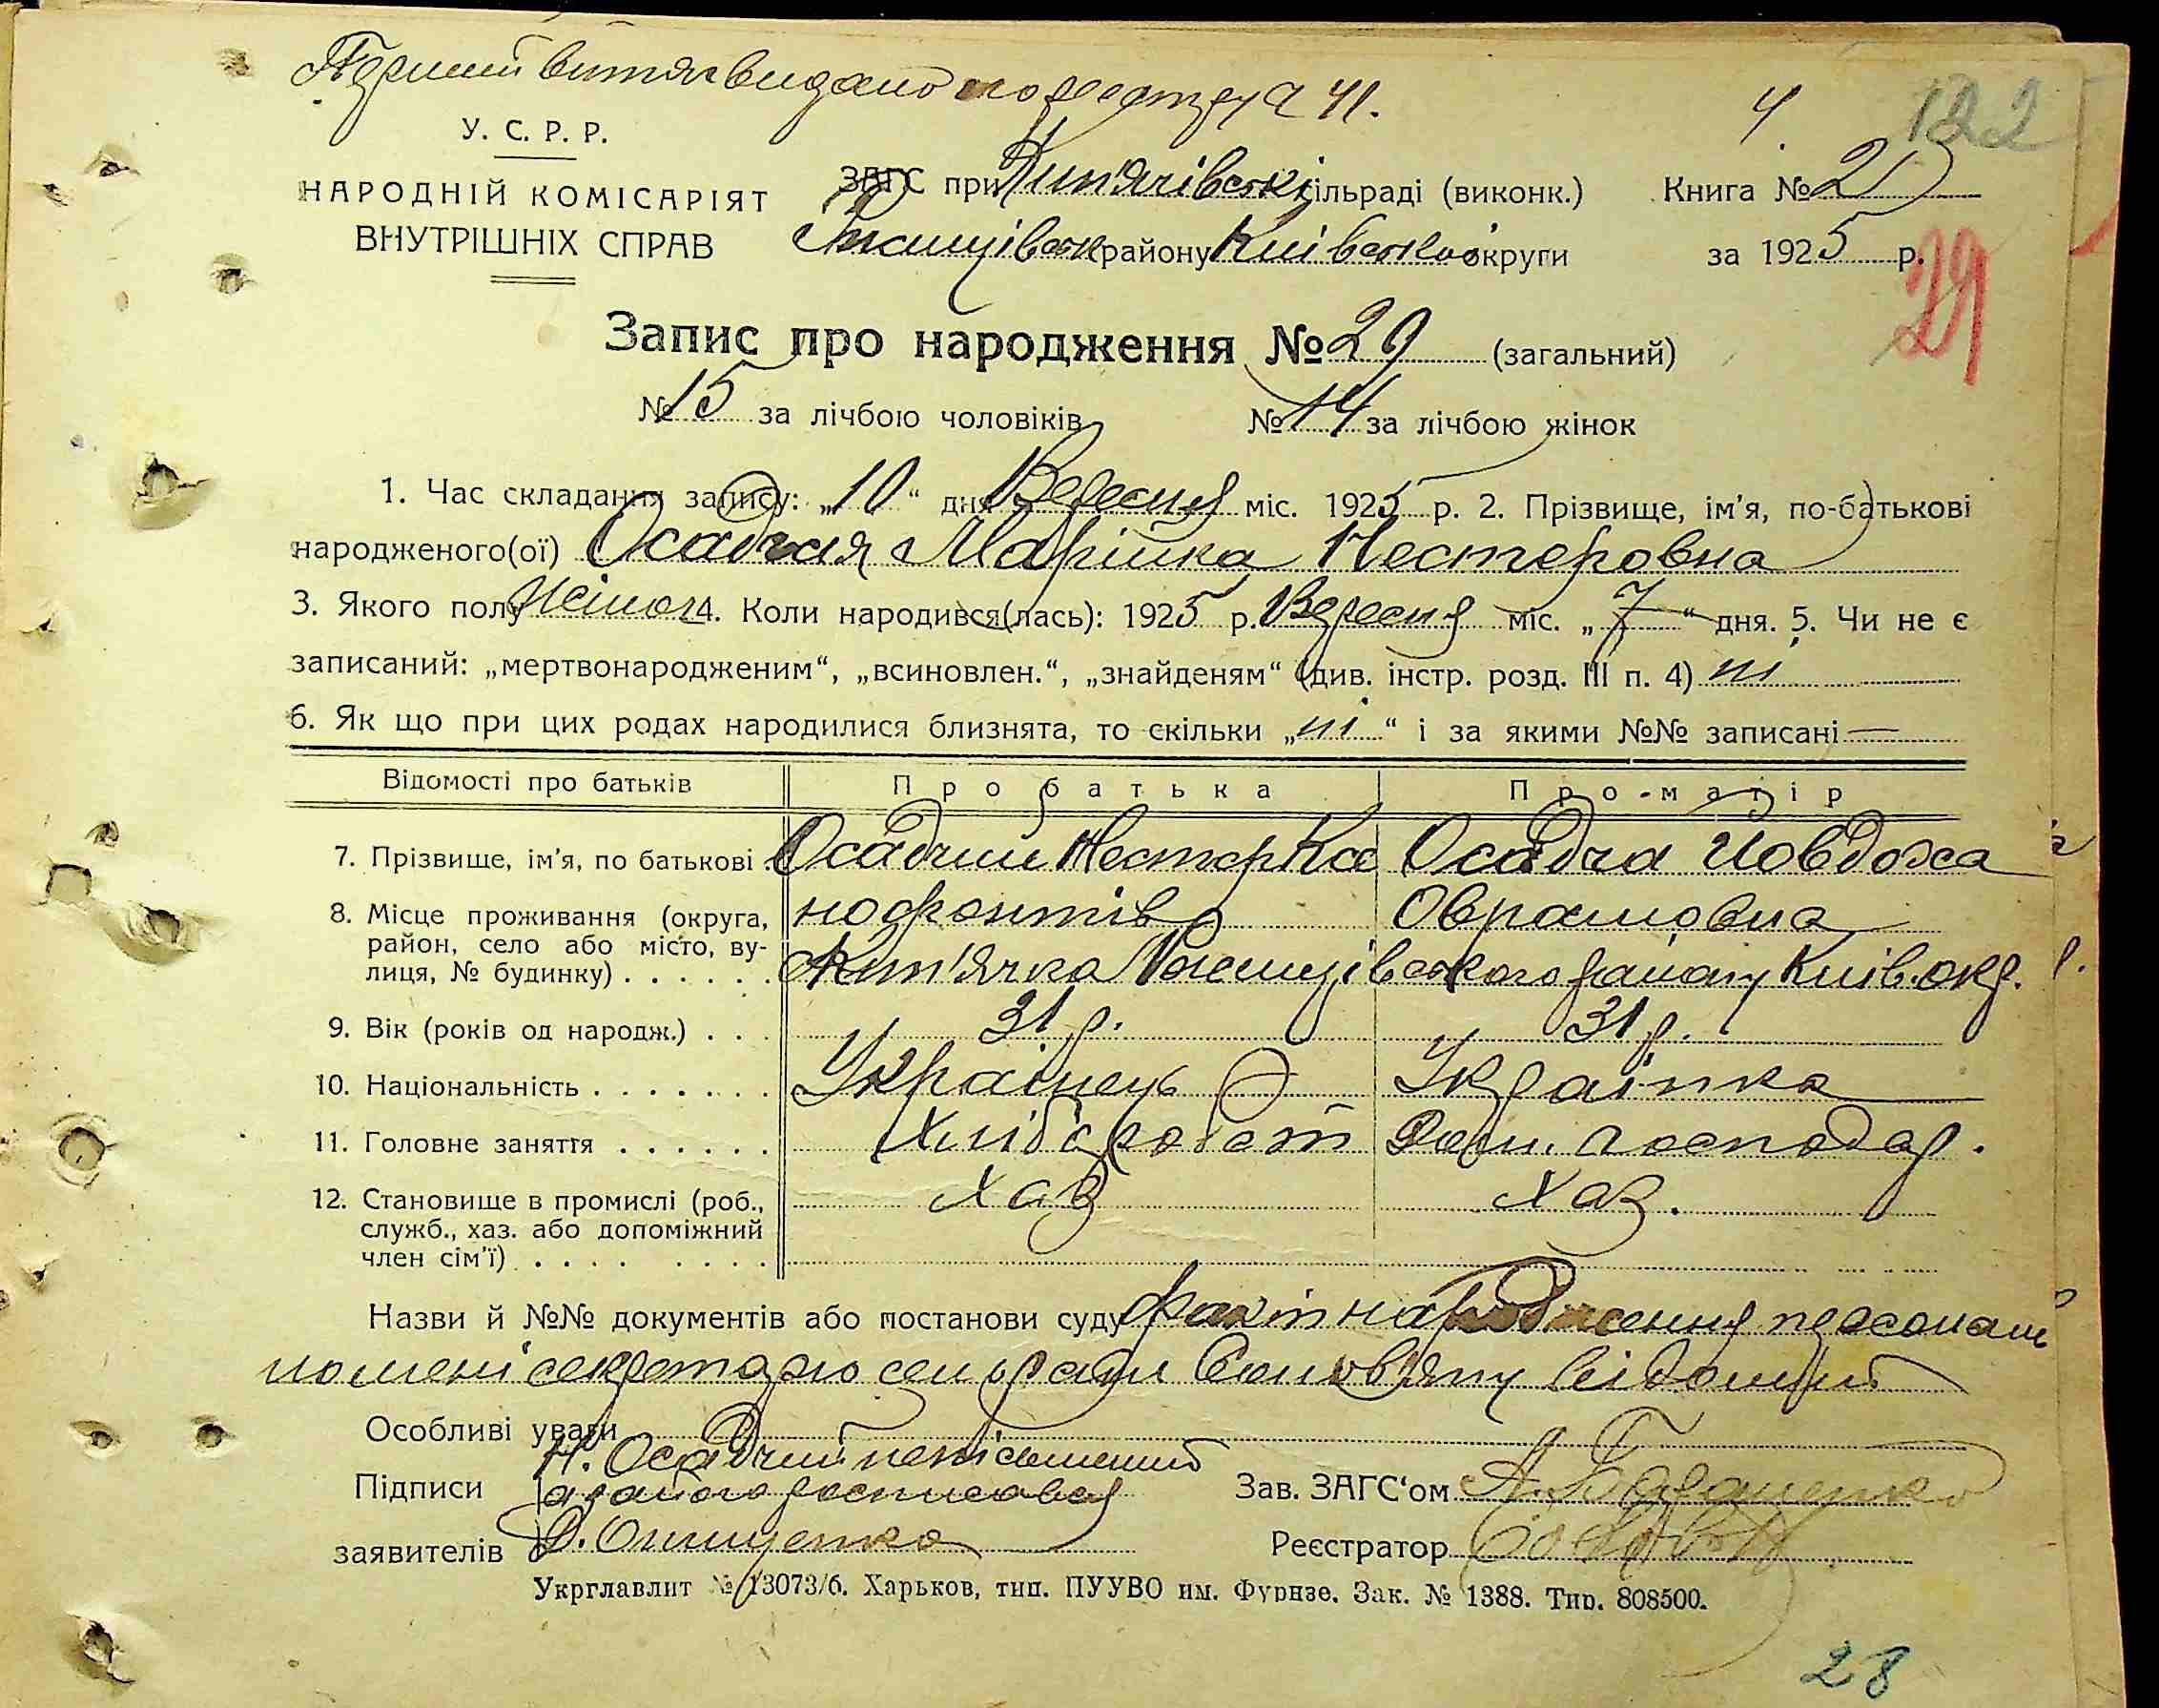 Перший витяг видано по реєстру ч 41.
4. 122
У. С. Р. Р.
НАРОДНІЙ КОМІСАРІЯТ
ВНУТРІШНІХ СПРАВ
ЗАГС при Кип'ячівські сільраді (виконк.) Книга № 2
району Київської округи за 1925 р.
29
Запис про народження № 29 (загальний)
№ 15 за лічбою чоловіків № 14 за лічбою жінок
1. Час складання запису: „10“ дня Вересня міс. 1925 р. 2. Прізвище, ім'я, по-батькові
народженого(ої) Осадчая Марійка Нестеровна
3. Якого полу Жіноч 4. Коли народився(лась): 1925 р. Вересня міс. „7“ дня. 5. Чи не є
записаний: „мертвонародженим“, „всиновлен.“, „знайденям“ (див. інстр. розд. III п. 4) ні
6. Як що при цих родах народилися близнята, то скільки „ні“ і за якими №№ записані —
Відомості про батьків Про батька Про-матір
7. Прізвище, ім'я, по батькові Осадчий Нестер Ксе Осадча Йовдоха
нофонтів Оврамовна
8. Місце проживання (округа,
район, село або місто, ву-
лиця, № будинку) . . . . . . району Київ. окр.
9. Вік (років од народж.) . . . 31 р. 31 р.
10. Національність . . . . . . . Українець Українка
11. Головне заняття . . . . . . Хлібороб Дом. господар.
12. Становище в промислі (роб.,
служб., хаз. або допоміжний
член сім'ї) . . . . . . . . Хаз Хаз.
Назви й №№ документів або постанови суду факт народження персонально
мені секретарю сельради відомий
Особливі уваги
Підписи Н. Осадчий неписьменний
а за його росписався
заявителів Онищенко
Зав. ЗАГС'ом
Реєстратор
Укрглавлит № 13073/6. Харьков, тип. ПУУВО им. Фрунзе. Зак. № 1388. Тир. 808500.
28